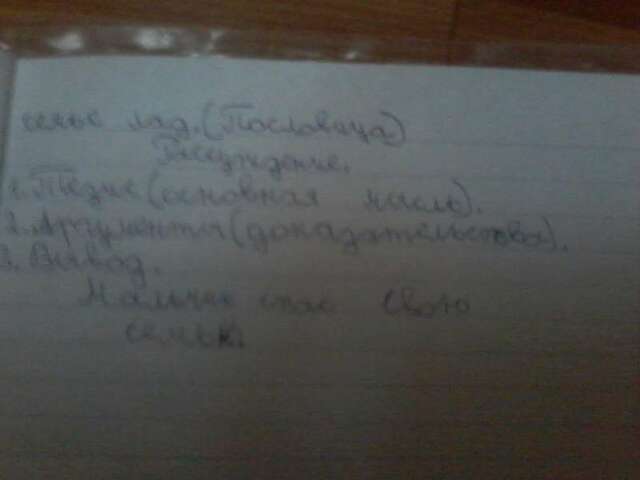 семье лад. (Пословица)
Рассуждение.
1. Тезис (основная мысль).
2. Аргументы (доказательства).
3. Вывод.
спас свою
семью.